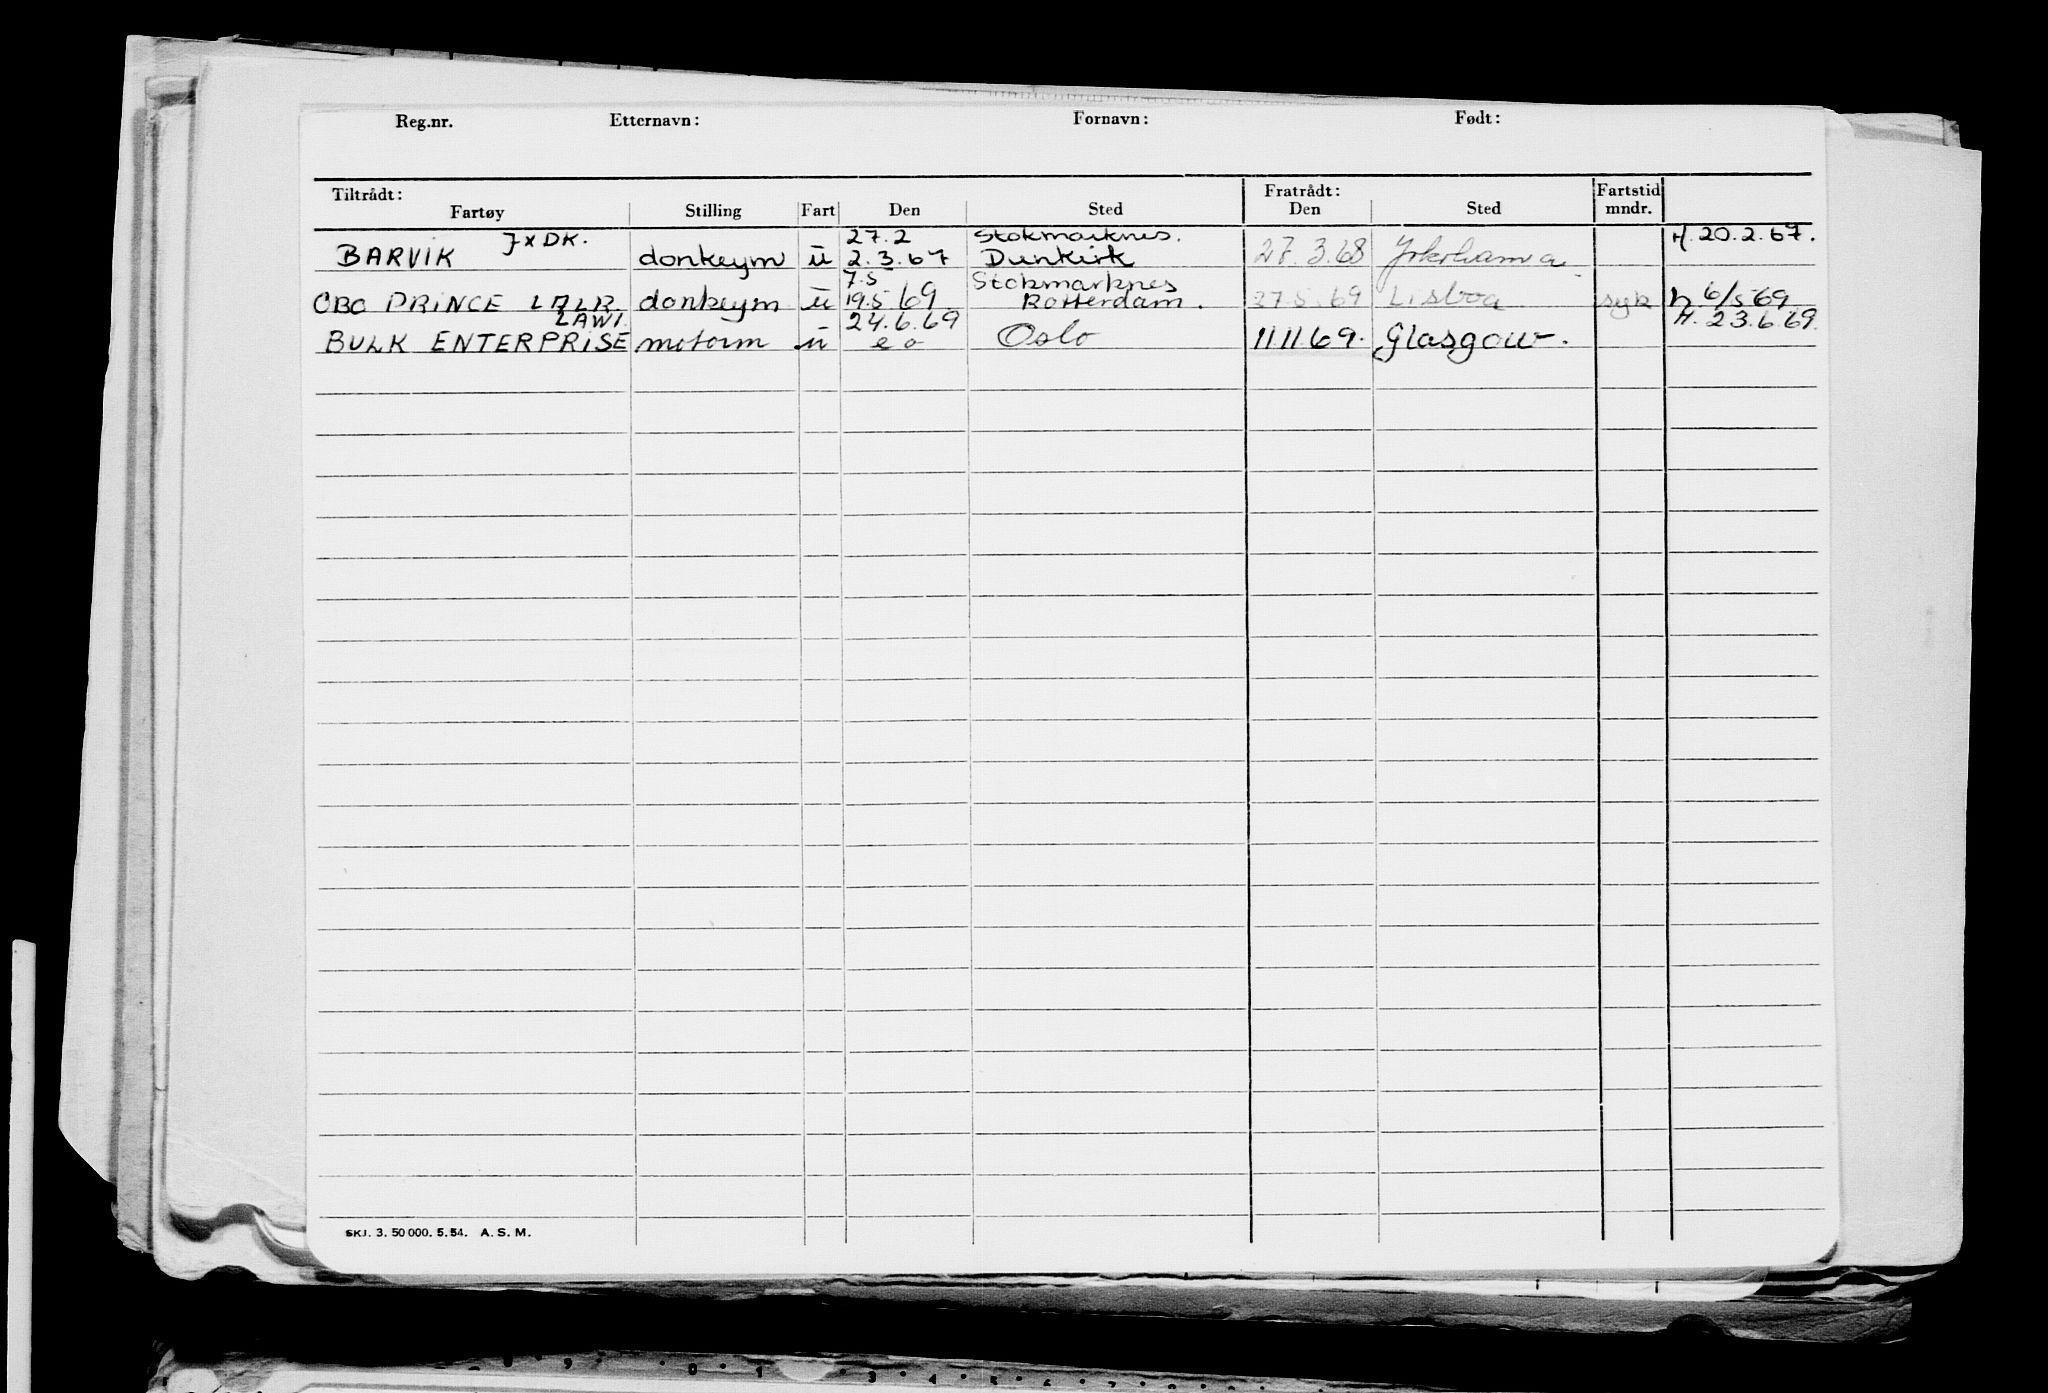 Reg.nr. Etternavn: Fornavn: Født:
Tiltrådt: Fratrådt: Fartstid
Fartøy Stilling Fart Den Sted Den Sted mndr.
JXDK. 27.2 Stokmarknes. H. 20.2.67.
BARVIK donkeym u 2.3.67 Dunkirk 27.3.68 Yokohama
7.5 Stokmarknes
OBO PRINCE LALR donkeym u 19.5 69 Rotterdam. 27.5.69 Lisboa syk h 6/5 69
LAWI 24.6.69 H. 23.6.69.
BULK ENTERPRISE motorm u e o Oslo 11.11.69. Glasgow.
SKJ. 3. 50 000. 5. 54. A. S. M.